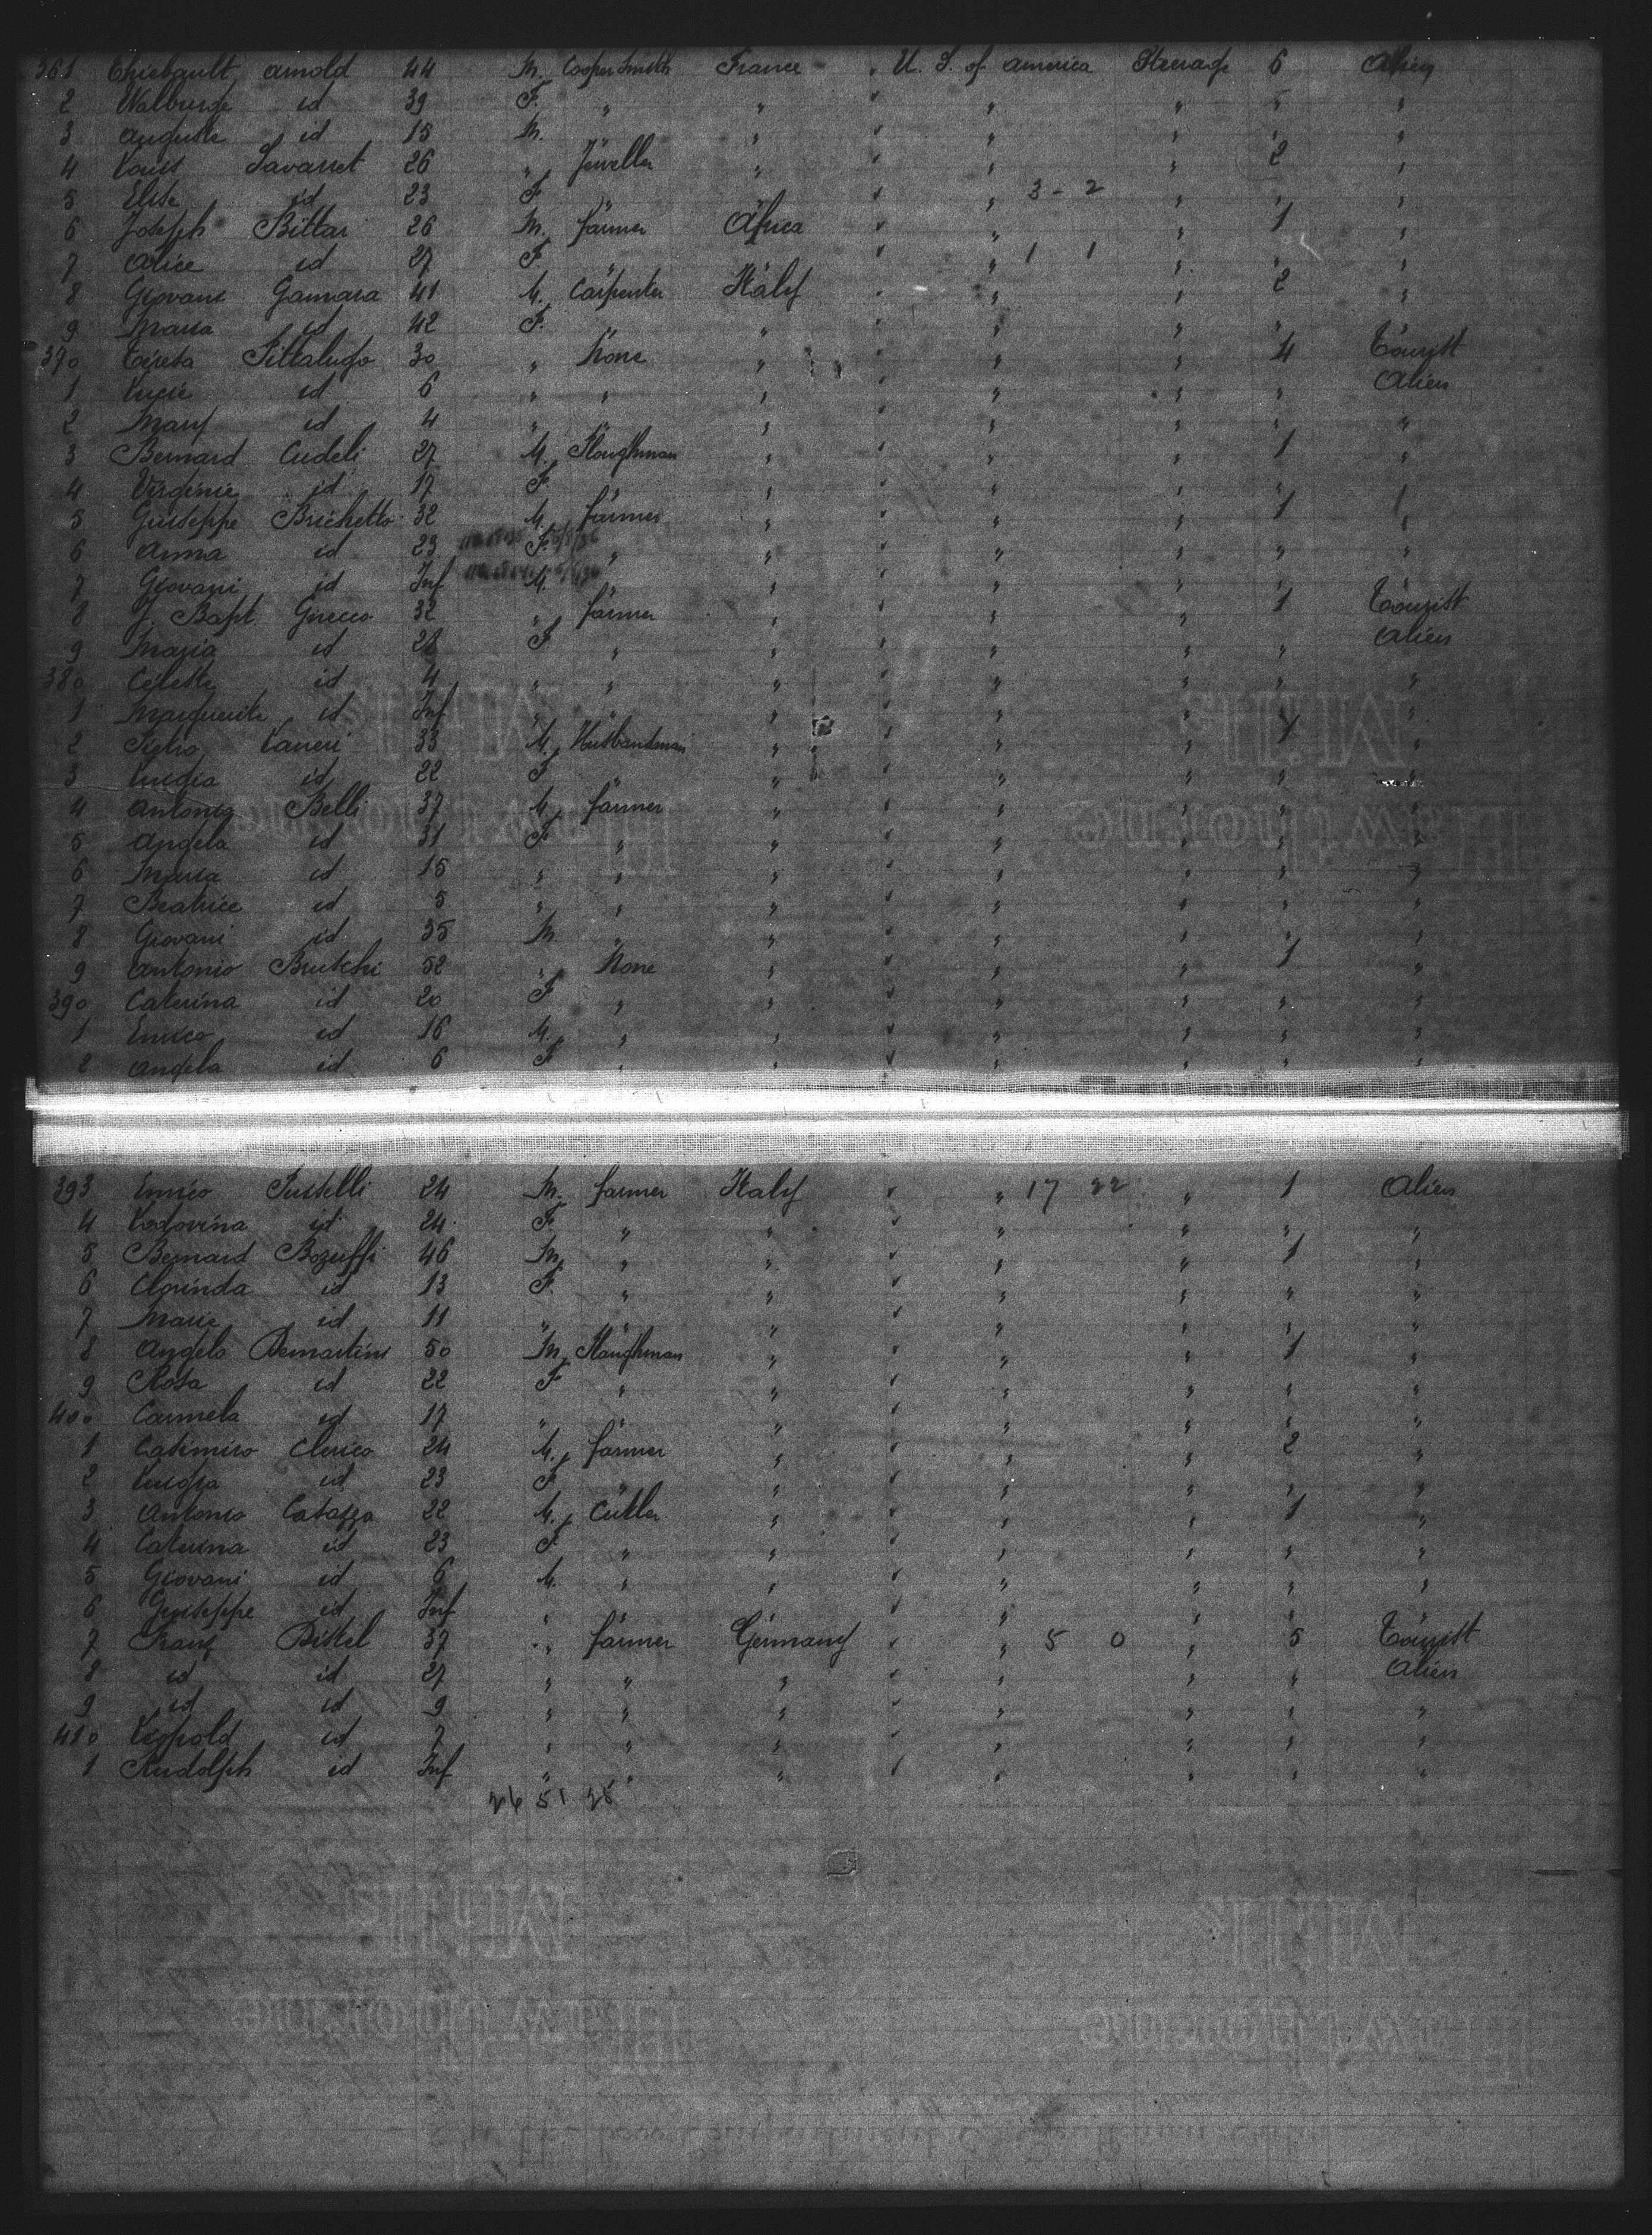 361 Thiebault Arnold 44 M. Cooper Smith France " U. S. of America Steerage 6 Alien
2 Walburge id 39 F. " " " " " " "
3 Auguste id 15 M. " " " " "
4 Louis Savarret 26 " Jeweller " " " 2 "
5 Elise id 23 F. " " " 3 - 2 " " "
6 Joseph Bittar 26 M. farmer Africa " " 1 "
7 Alice id 27 F. " " " 1 1 " " "
8 Giovani Gamara 41 M. Carpenter Italy " " 2 "
9 Maria id 42 F. " " " " "
370 Tereta Pittalugo 30 " None " " " 4 Tourist
1 Lucie id 6 " " " " " " Alien
2 Mary id 4 " " " " " " "
3 Bernard Cudeli 27 M. Ploughman " " " 1 "
4 Virginie id 17 F. " " " " " "
5 Giuseppe Brichetto 32 M. farmer " " " 1 "
6 Anna id 23 F. " " " " " "
7 Giovani id Inf M. " " " " "
8 J. Bapt. Grecco 32 " farmer " " " 1 Tourist
9 Maria id 28 F " " " " " Alien
380 Celeste id 4 " " " " " " "
1 Marguerite id Inf " " " " " "
2 Laneri 33 M. Husbandman " " " 1 "
3 Luigia id 22 F " " " " " "
4 Antonio Belli 37 M. farmer " " " " "
5 Angela id 31 F " " " " " "
6 Maria id 15 " " " " " " "
7 Beatrice id 5 " " " " " " "
8 Giovani id 35 M " " " " " "
9 Antonio Brutchi 52 " None " " " 1 "
390 Caterina id 20 F " " " " " "
1 Enrico id 16 M. " " " " " "
2 Angela id 6 F " " " " " "
393 Enrico Pustelli 24 M. farmer Italy " 17 22 " 1 Alien
4 Lodovina id 24 F. " " " " " "
5 Bernard Bozuffi 46 M. " " " " 1 "
6 Clorinda id 13 F. " " " " " "
7 Marie id 11 " " " " " " "
8 Angelo Demartini 50 M. Ploughman " " " 1 "
9 Rosa id 22 F " " " " " "
400 Carmela id 17 " " " " " " "
1 Casimiro Clerico 24 M. farmer " " " 2 "
2 Luigia id 23 F " " " " " "
3 Antonio Catazza 22 M. Cutler " " " 1 "
4 Caterina id 23 F " " " " " "
5 Giovani id 6 M. " " " " " "
6 Giuseppe id Inf " " " " "
7 Franz Bistel 37 " farmer Germany " 5 0 " 5 Tourist
8 id id 27 " " " " " " Alien
9 id id 9 " " " " " " "
410 Leopold id 7 " " " " " " "
1 Rudolph id Inf " " " " " " "
26 51 28